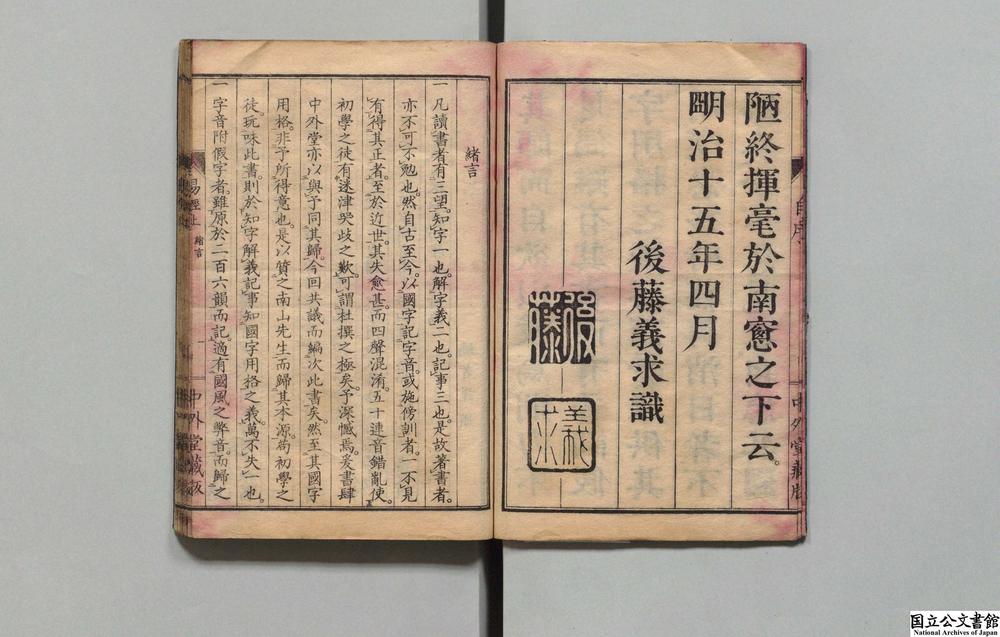 陋終揮毫於南窓之下云。
明治十五年四月
後藤義求識
後藤
義求
中外堂藏版
緒言
一凡讀書者有三望。知字一也。解字義二也。記事三也。是故著書者。
亦不可不勉也。然自古至今。以國字記字音。或施傍訓者。一不見
有得其正者。至於近世。其失愈甚。而四聲混淆。五十連音錯亂。使
初學之徒有迷津哭歧之歎。可謂杜撰之極矣。予深憾焉。爰書肆
中外堂亦以與予同其歸。今回共議而編次此書矣。然至其國字
用格。非予所得意也。是以質之南山先生而歸其本源。苟初學之
徒。玩味此書。則於知字解義記事。知國字用格之義。萬不失一也。
一字音附假字者。雖原於二百六韻而記。適有國風之弊音。而歸之
易經上
緒言
中外堂藏版
国立公文書館
National Archives of Japan